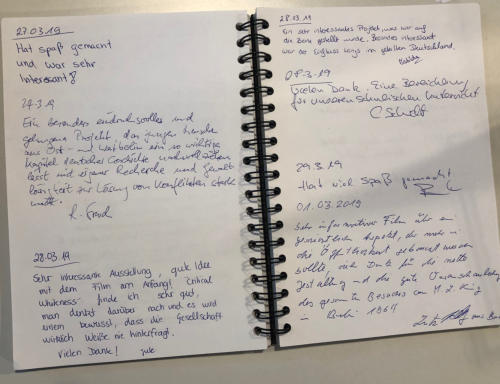 27.03.19
Hat spaß gemacht
und war sehr
Interesant!
27.3.19
Ein besonders eindrucksvolles und
gelungenes Projekt, das junge Menschen
aus Ost- und Westberlin ein so wichtiges
Kapitel deutscher Geschichte nachvollziehen
lässt und eigene Recherche und
zur Lösung von Konflikten stark
macht.
28.03.19
Sehr interessante Ausstellung, gute Idee
mit dem Film am Anfang! Critical
Whiteness finde ich sehr gut,
man denkt darüber nach und es wird
einem bewusst, dass die Gesellschaft
wirklich Weiße nie hinterfragt.
Vielen Dank!
28.03.19
Ein sehr interessantes Projekt, was hier auf
die Beine gestellt wurde. Besonders interessant
war der Einfluss Kings im geteilten Deutschland.
3.19
Vielen Dank. Eine Bereicherung
für unseren schulischen Unterricht
29.3.19
Hat viel Spaß gemacht
01.03.2019
Sehr informativer Film über ein
Aspekt, der mehr in
die Öffentlichkeit gebracht werden
sollte, viel Dank für die nette
Gestaltung und die gute Veranschaulichung
des gesamten Besuches von M. L. King
in Berlin 1964